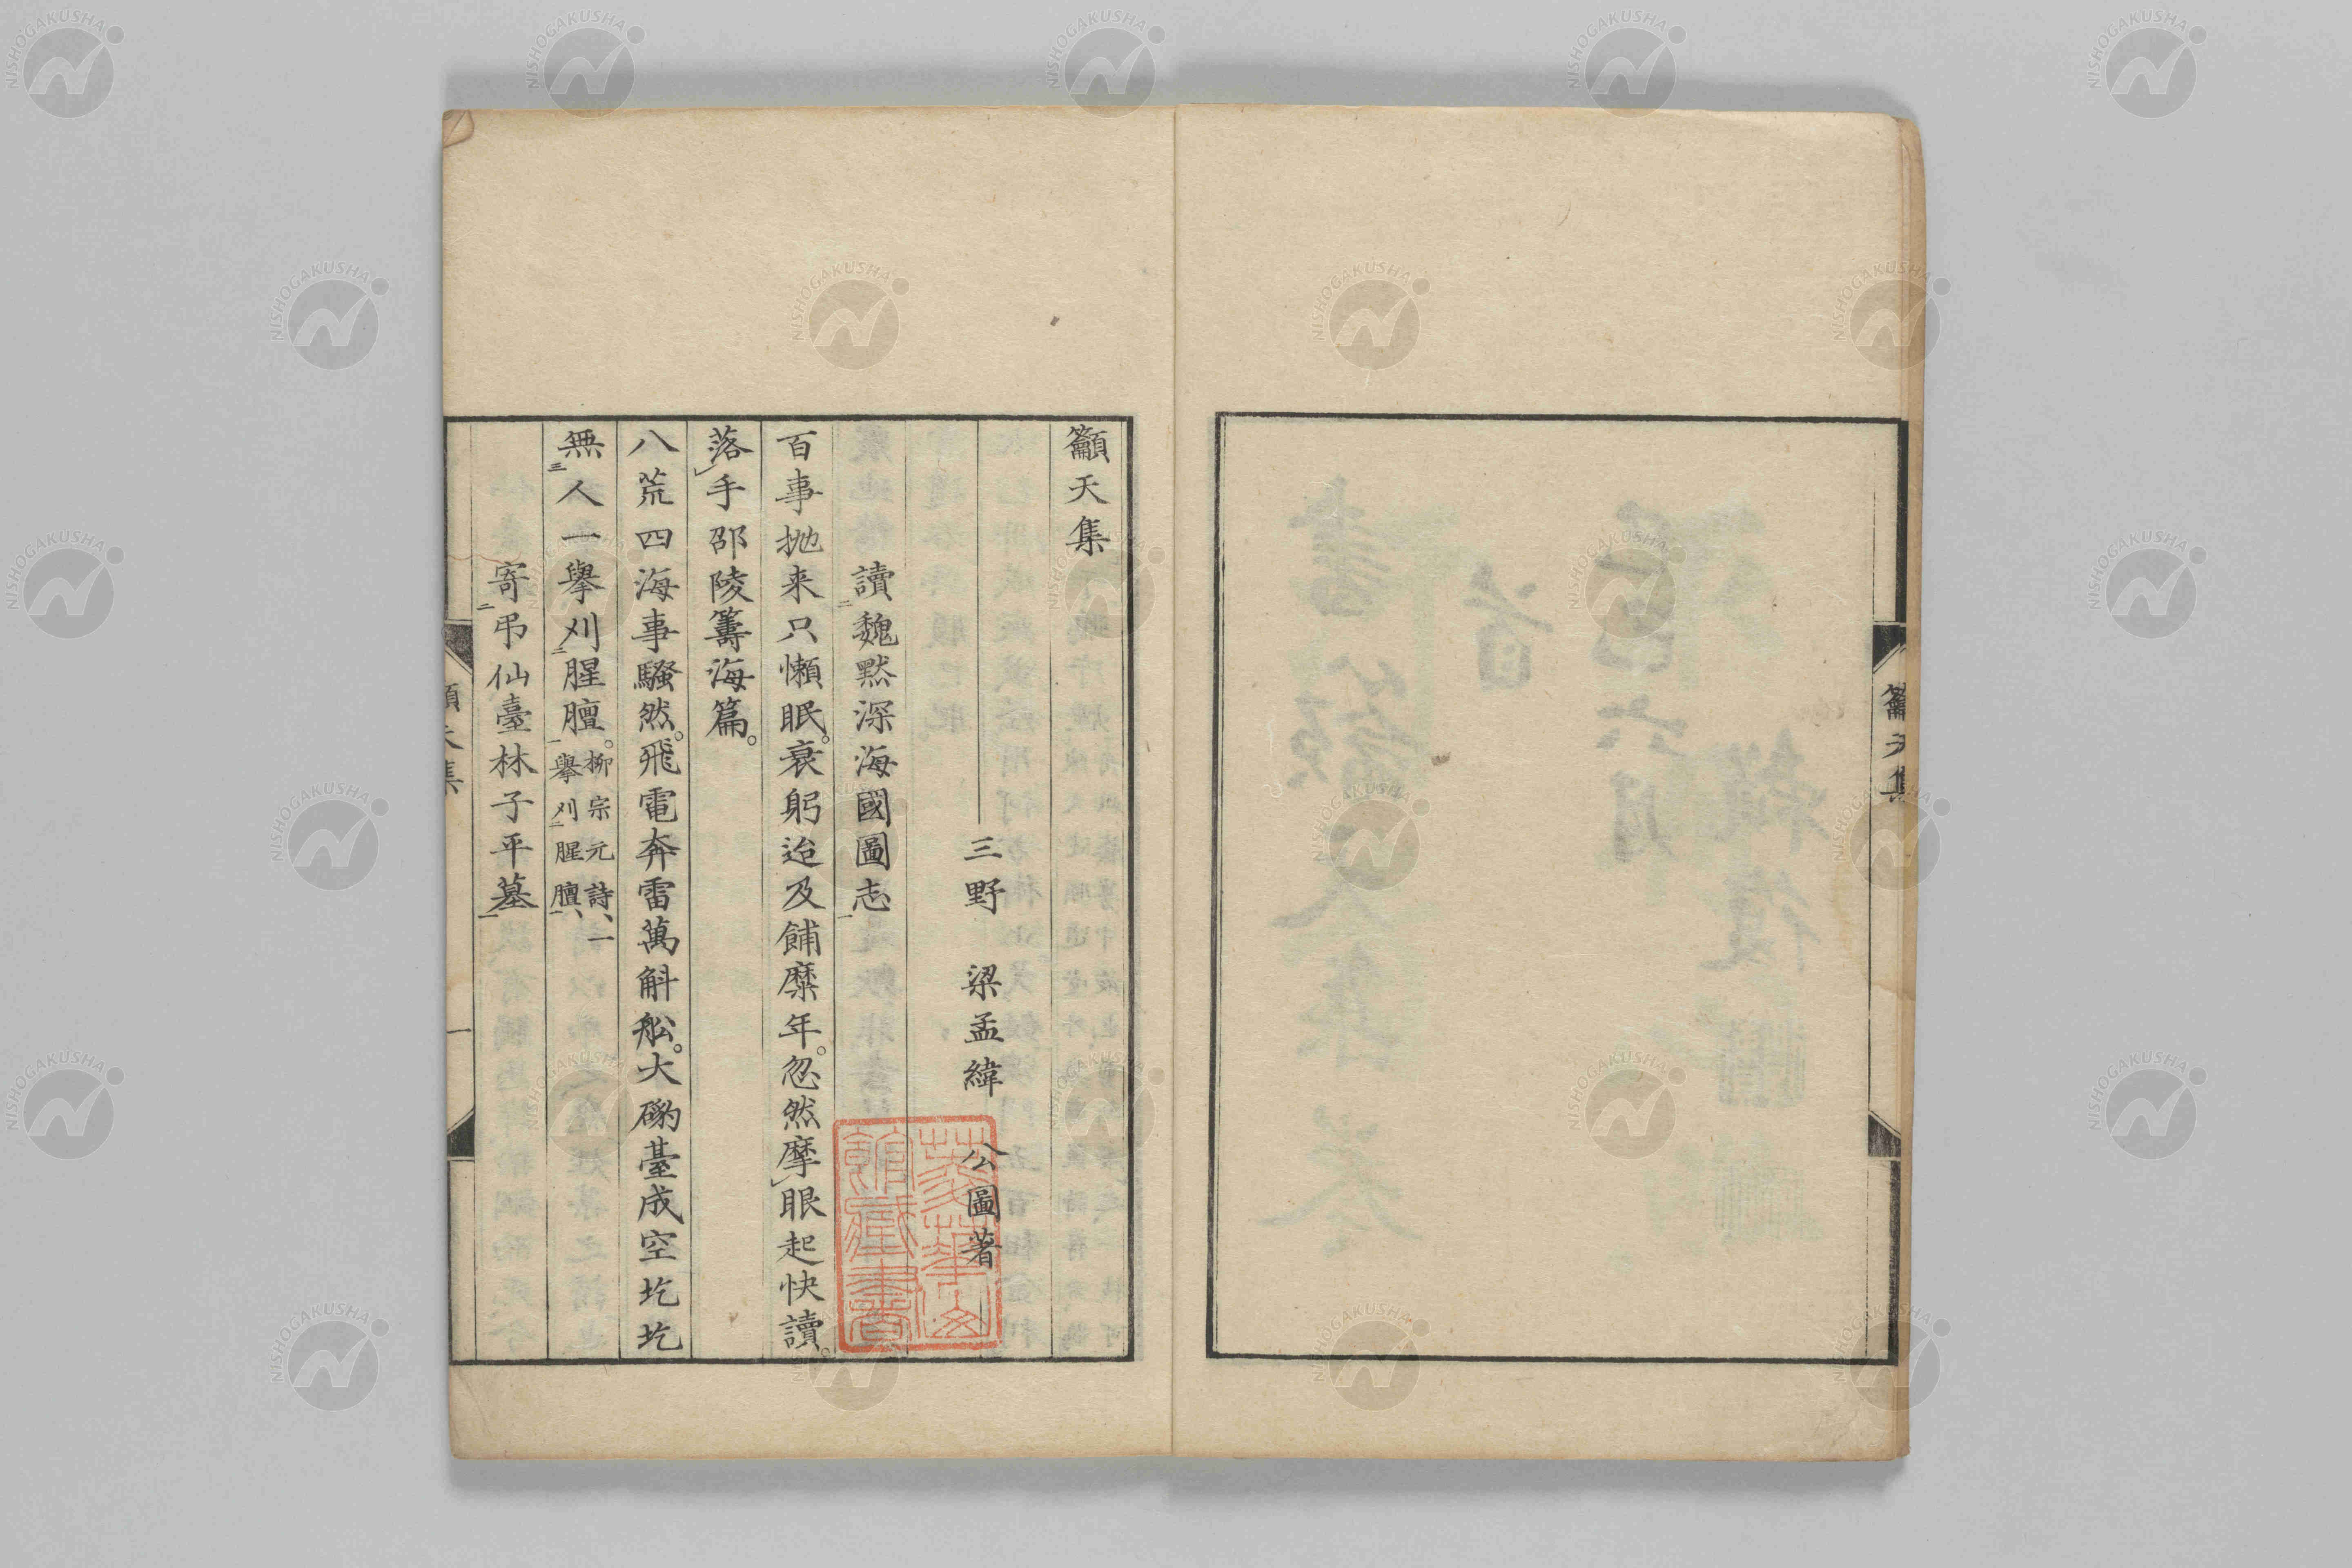 籲天集
三野 梁孟緯 公圖著
讀魏默深海國圖志
百事抛来只懶眠。衰躬迨及餔糜年。忽然摩眼起快讀。
落手邵陵籌海篇。
八荒四海事騷然。飛電奔雷萬斛舩。大礮臺成空圪圪
無人一擧刈腥膻。柳宗元詩、一
擧刈腥膻、
寄弔仙臺林子平墓
籲天集
一
NISHOGAKUSHA